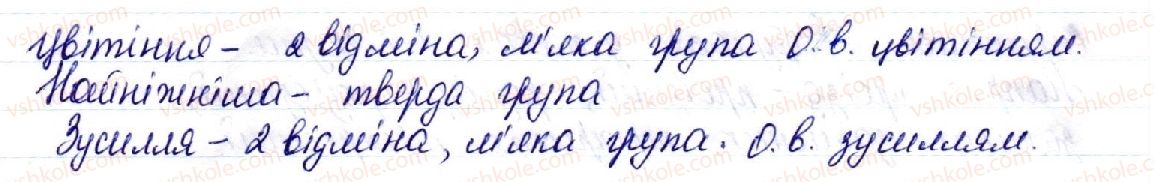 Цвітіння – 2 відміна, м'яка група О.в. цвітінням.
Найніжніша – тверда група
Зусилля – 2 відміна, м'яка група. О.в. зусиллям.